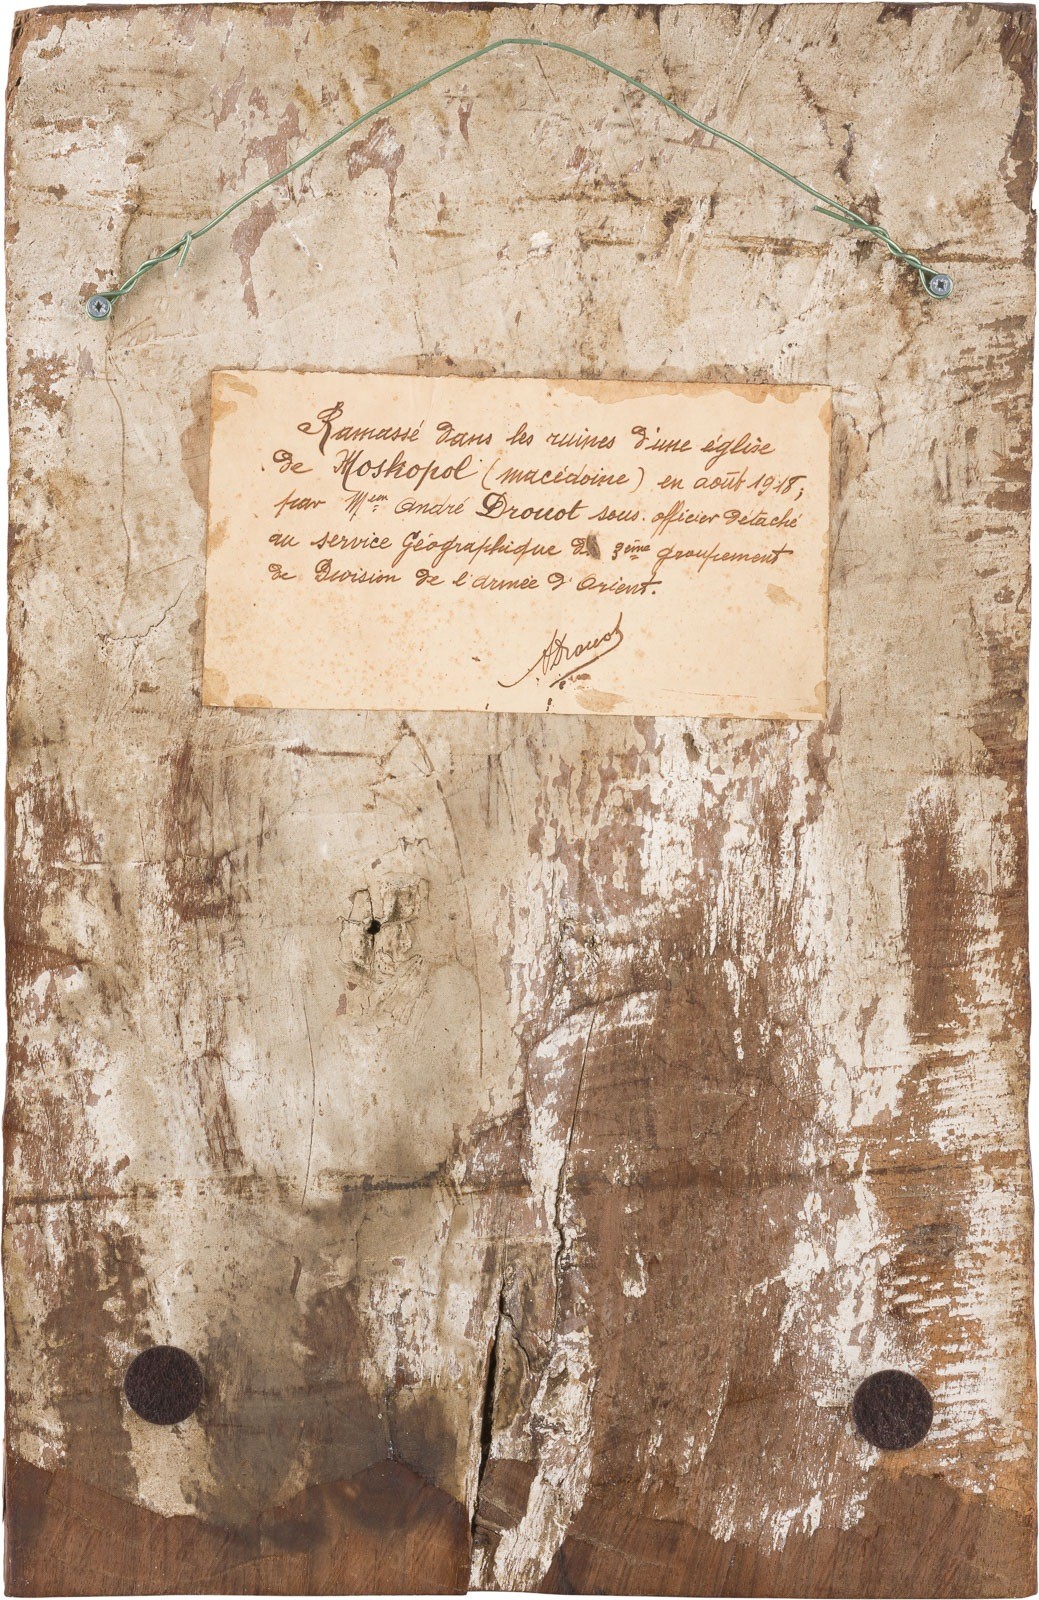 Ramassé dans les ruines d'une église
de Moskopol (macédoine) en août 1918;
par Meur André Drouot sous officier détaché
au service Géographique du 3ème groupement
de Division de l'armée d'Orient.
ADrouot